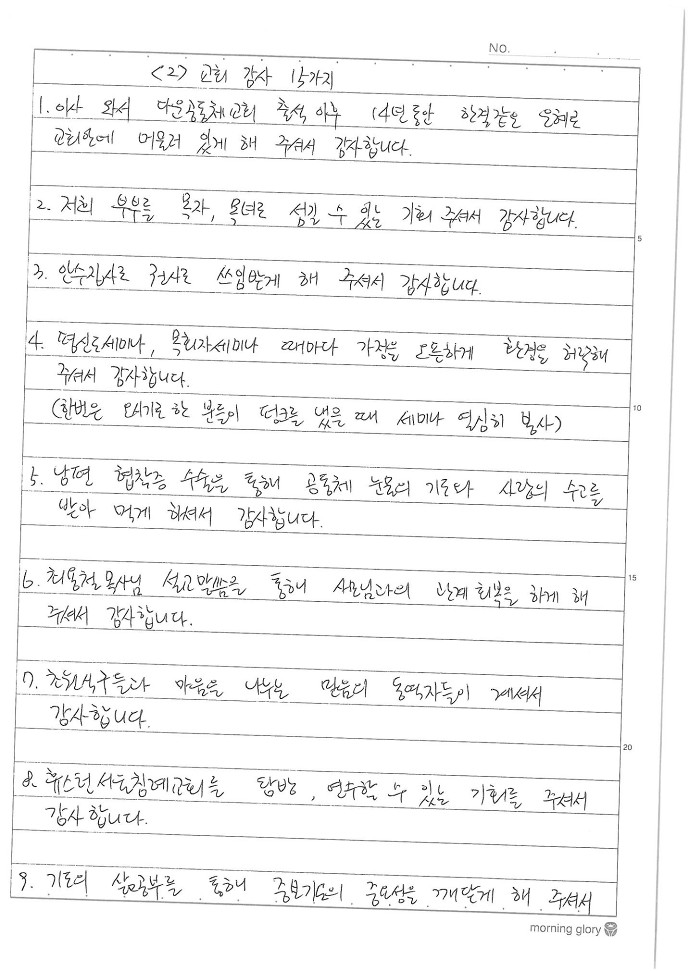 No.
<2> 교회 감사 15가지
1. 이사 와서 다운공동체교회 출석 이후 14년동안 한결같은 은혜로
교회안에 머물러 있게 해 주셔서 감사합니다.
2. 저희 부부를 목자, 목녀로 섬길 수 있는 기회 주셔서 감사합니다.
5
3. 안수집사로 권사로 쓰임받게 해 주셔서 감사합니다.
4. 평신도세미나, 목회자세미나 때마다 가정을 오픈하게 환경을 허락해
주셔서 감사합니다.
10
(한번은 오시기로 한 분들이 펑크를 냈을 때 세미나 열심히 봉사)
5. 남편 협착증 수술을 통해 공동체 눈물의 기도와 사랑의 수고를
받아 먹게 하셔서 감사합니다.
15
6. 최용철목사님 설교말씀을 통해 사모님과의 관계회복을 하게 해
주셔서 감사합니다.
7. 초원식구들과 마음을 나누는 믿음의 동역자들이 계셔서
감사합니다.
20
8. 휴스턴서울침례교회를 탐방, 연수할 수 있는 기회를 주셔서
감사합니다.
9. 기도의 삶공부를 통해 중보기도의 중요성을 깨닫게 해 주셔서
morning glory